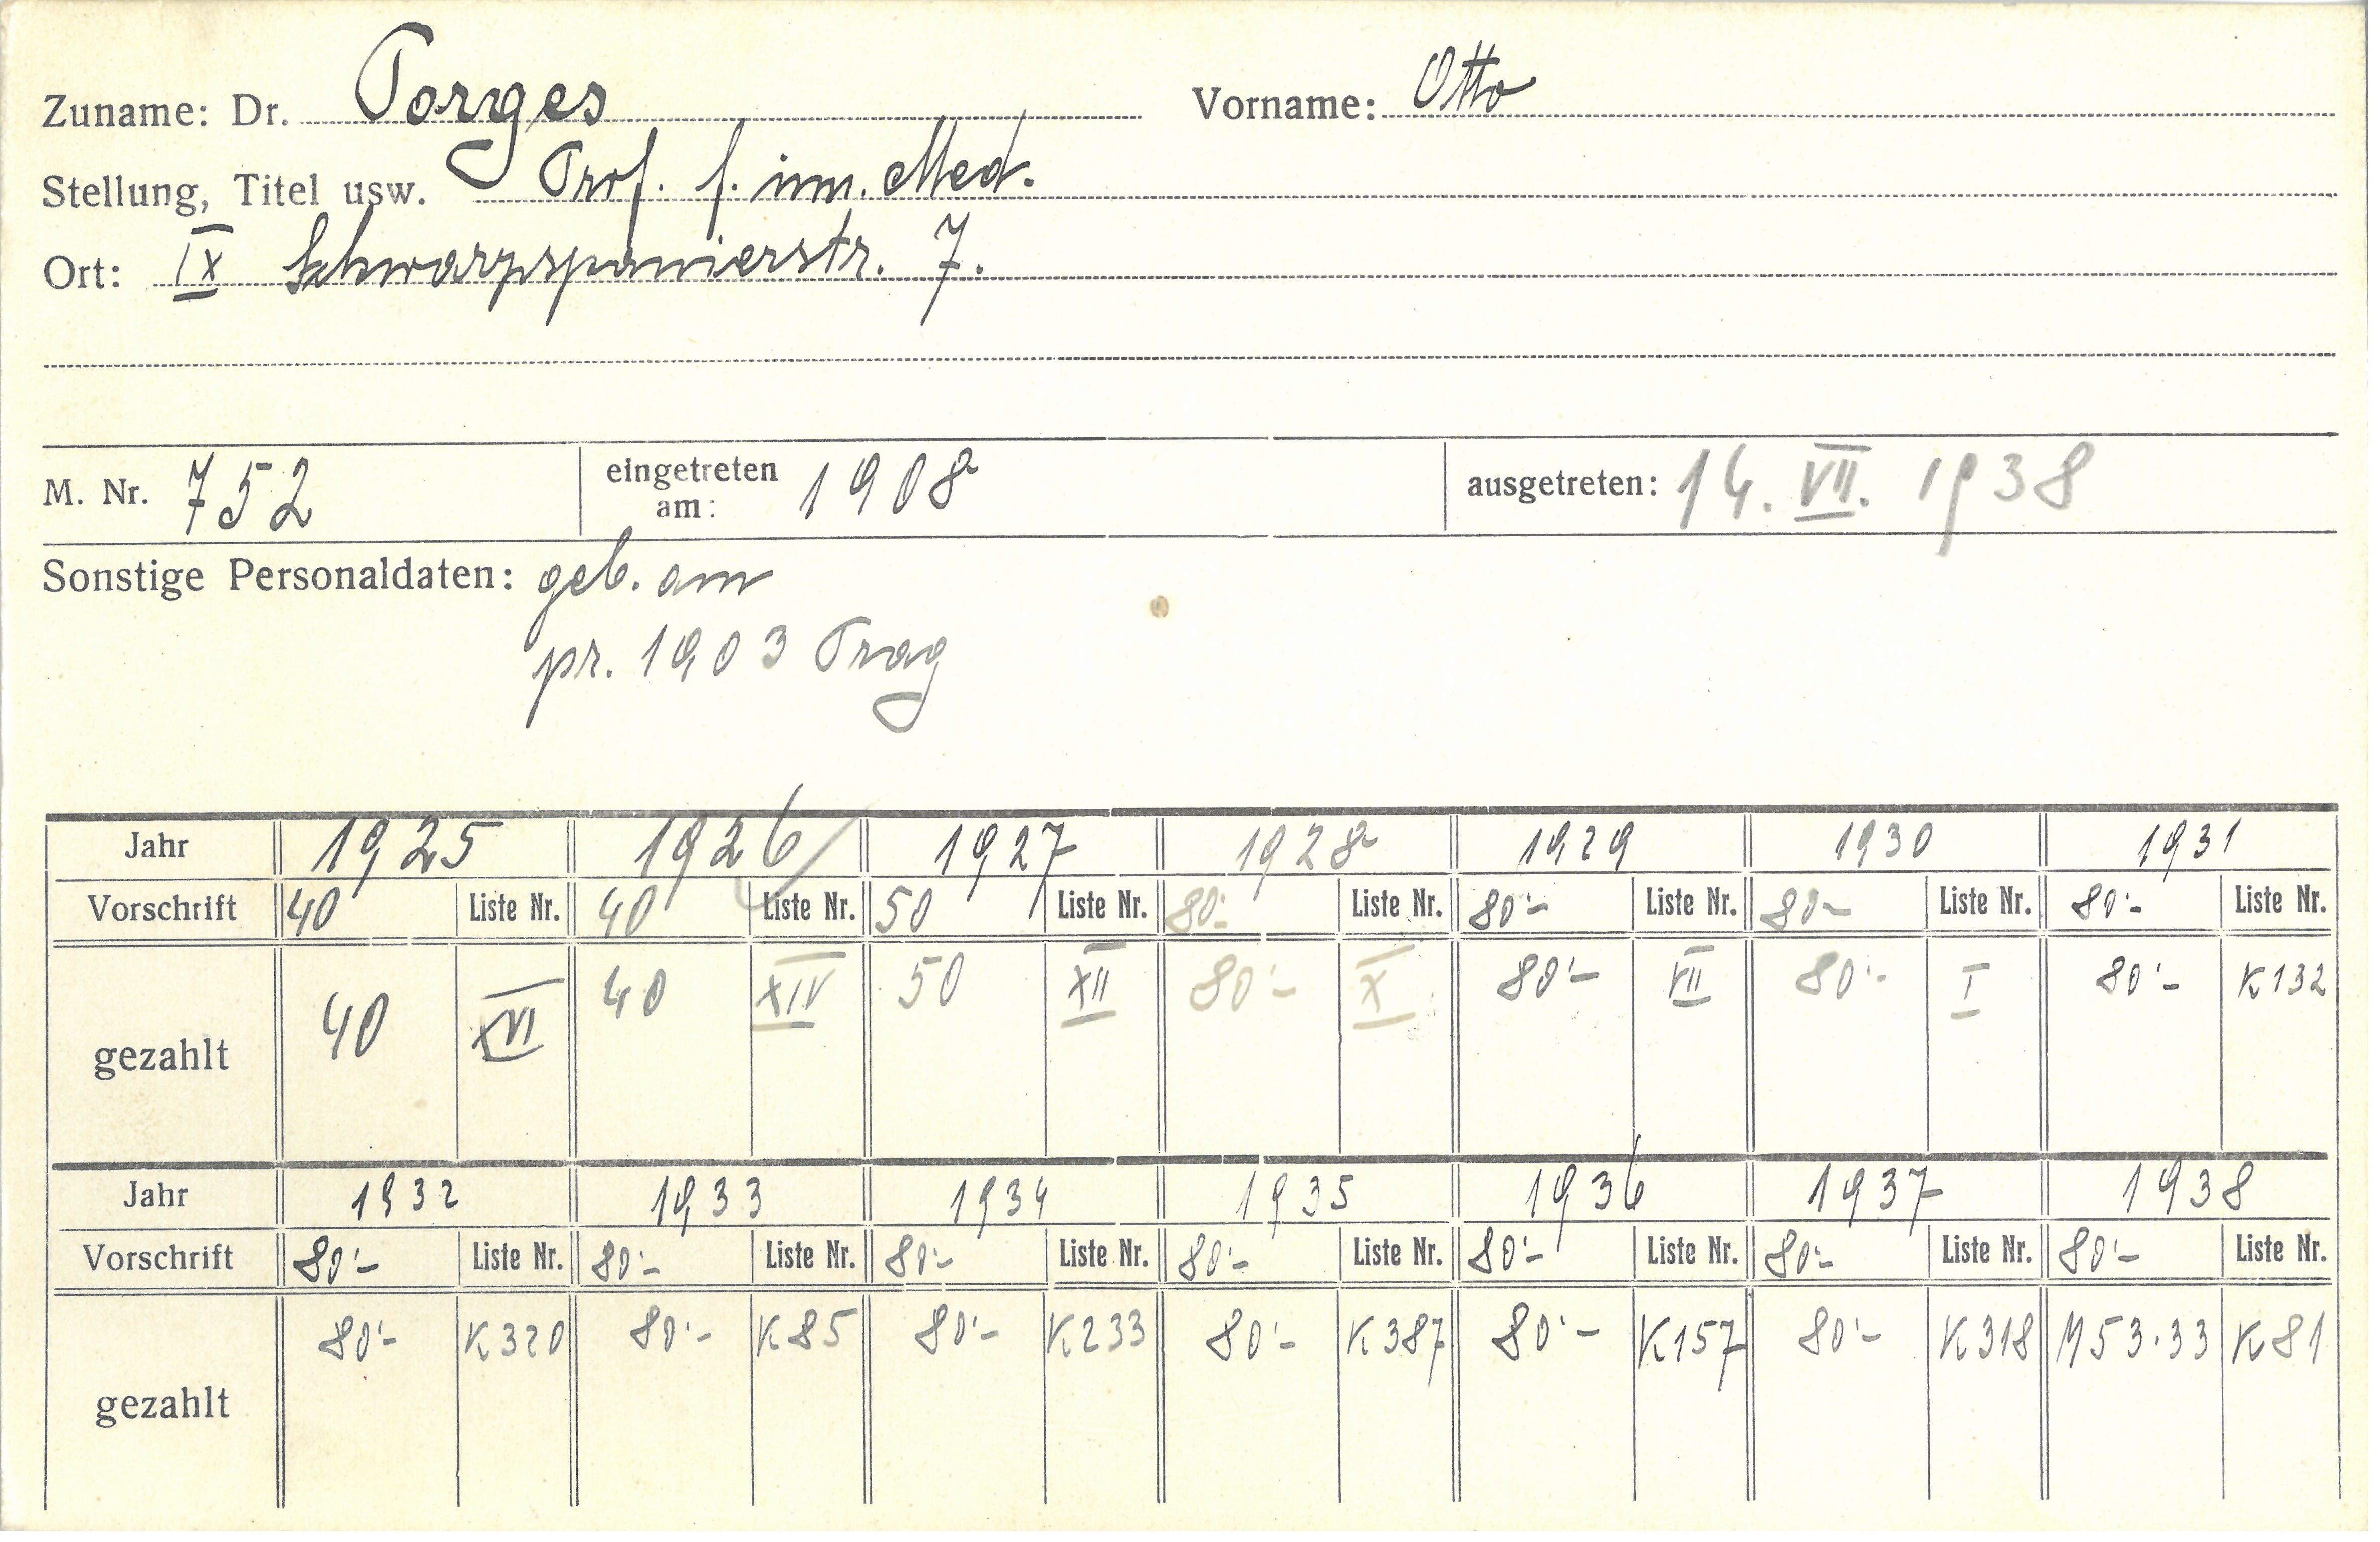 Zuname: Dr. Porges Vorname: Otto
Stellung, Titel usw. Prof. f. inn. Med.
Ort: IX Schwarzspanierstr. 7.
M. Nr. 752 eingetreten am: 1908 ausgetreten: 14. VII. 1938
Sonstige Personaldaten: geb. am
pr. 1903 Prag
Jahr 1925 1926 1927 1928 1929 1930 1931
Vorschrift 40 Liste Nr. 40 Liste Nr. 50 Liste Nr. 80'- Liste Nr. 80'- Liste Nr. 80'- Liste Nr. 80'- Liste Nr.
gezahlt 40 XVI 40 XIV 50 XII 80'- X 80'- VII 80'- I 80'- K132
Jahr 1932 1933 1934 1935 1936 1937 1938
Vorschrift 80'- Liste Nr. 80'- Liste Nr. 80'- Liste Nr. 80'- Liste Nr. 80'- Liste Nr. 80'- Liste Nr. 80'- Liste Nr.
gezahlt 80'- K320 80'- K85 80'- K233 80'- K387 80'- K157 80'- K318 M53.33 K81